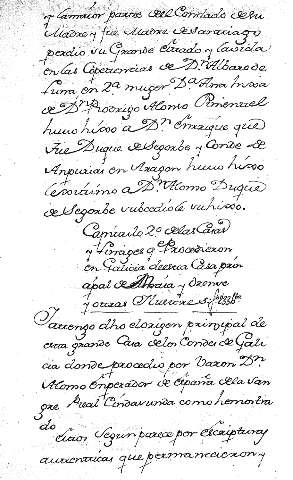 y la maior parte del Condado de su
Madre y fue Maestre de Santiago
perdio su Grande estado y la vida
en las Esperiencias de Dn. Albaro de
Luna en 2a. muger Da. Ana hixsa
de Dn. Rodrigo Alonso Pimentel
huuo hixso a Dn. Enrrique que
fue Duque de Segorbe y Conde de
Anpurias en Aragon huuo hixso
lexsitimo a Dn. Alonso Duque
de Segorbe subcediole su hixso.
Capitulo 2o. de las Casas
y Linages qe. Procedieron
en Galicia de esta Casa prin
cipal de y Orense
y otras
Ia tengo dho el origen principal de
esta grande Casa de los Condes de Gali
cia donde procedio por Varon Dn.
Alonso Enperador de España de la San
gre Real Goda como he mostra
do
Segun parece por escripturas
autenticas que permanecieron y